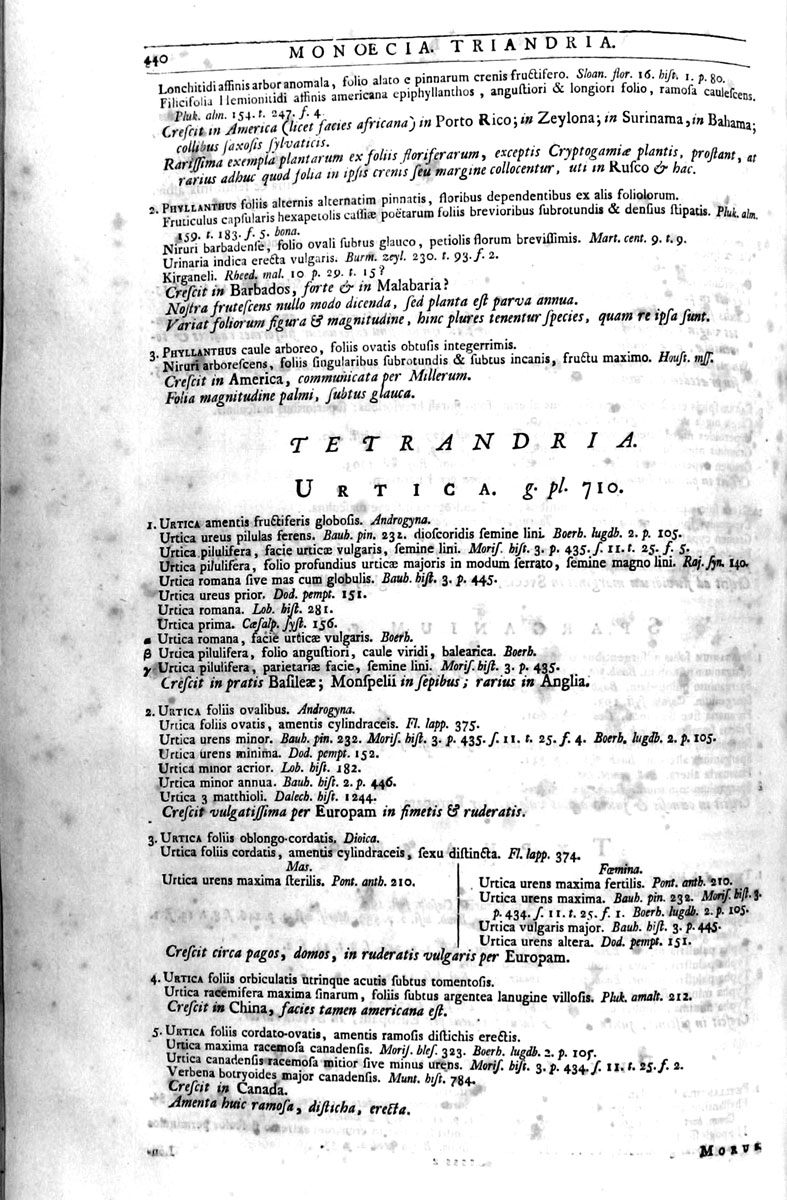 440
MONOECIA. TRIANDRIA.
Lonchitidi affinis arbor anomala, folio alato e pinnarum crenis fructifero. Sloan. flor. 16. hiſt. 1. p. 80.
Filicifolia Hemionitidi affinis americana epiphyllanthos, anguſtiori & longiori folio, ramoſa cauleſcens.
Pluk. alm. 154. t. 247. f. 4.
Creſcit in America (licet facies africana) in Porto Rico; in Zeylona; in Surinama, in Bahama;
collibus ſaxoſis ſylvaticis.
Rariſſima exempla plantarum ex foliis floriferarum, exceptis Cryptogamiæ plantis, proſtant, at
rarius adhuc quod folia in ipſis crenis ſeu margine collocentur, uti in Ruſco & hac.
2. PHYLLANTHUS foliis alternis alternatim pinnatis, floribus dependentibus ex alis foliolorum.
Fruticulus capſularis hexapetolis caſſiæ poëtarum foliis brevioribus ſubrotundis & denſius ſtipatis. Pluk. alm.
159. t. 183. f. 5. bona.
Niruri barbadenſe, folio ovali ſubtus glauco, petiolis florum breviſſimis. Mart. cent. 9. t. 9.
Urinaria indica erecta vulgaris. Burm. zeyl. 230. t. 93. f. 2.
Kirganeli. Rheed. mal. 10 p. 29. t. 15?
Creſcit in Barbados, forte & in Malabaria?
Noſtra fruteſcens nullo modo dicenda, ſed planta eſt parva annua.
Variat foliorum figura & magnitudine, hinc plures tenentur ſpecies, quam re ipſa ſunt.
3. PHYLLANTHUS caule arboreo, foliis ovatis obtuſis integerrimis.
Niruri arboreſcens, foliis ſingularibus ſubrotundis & ſubtus incanis, fructu maximo. Houſt. mſſ.
Creſcit in America, communicata per Millerum.
Folia magnitudine palmi, ſubtus glauca.
TETRANDRIA.
URTICA. g. pl. 710.
1. URTICA amentis fructiferis globoſis. Androgyna.
Urtica ureus pilulas ferens. Bauh. pin. 232. dioſcoridis ſemine lini. Boerh. lugdb. 2. p. 105.
Urtica pilulifera, facie urticæ vulgaris, ſemine lini. Moriſ. hiſt. 3. p. 435. ſ. 11. t. 25. f. 5.
Urtica pilulifera, folio profundius urticæ majoris in modum ſerrato, ſemine magno lini. Raj. ſyn. 140.
Urtica romana ſive mas cum globulis. Bauh. hiſt. 3. p. 445.
Urtica ureus prior. Dod. pempt. 151.
Urtica romana. Lob. hiſt. 281.
Urtica prima. Cæſalp. ſyſt. 156.
α Urtica romana, facie urticæ vulgaris. Boerh.
β Urtica pilulifera, folio anguſtiori, caule viridi, balearica. Boerh.
γ Urtica pilulifera, parietariæ facie, ſemine lini. Moriſ. hiſt. 3. p. 435.
Creſcit in pratis Baſileæ; Monſpelii in ſepibus; rarius in Anglia.
2. URTICA foliis ovalibus. Androgyna.
Urtica foliis ovatis, amentis cylindraceis. Fl. lapp. 375.
Urtica urens minor. Bauh. pin. 232. Moriſ. hiſt. 3. p. 435. ſ. 11. t. 25. f. 4. Boerh. lugdb. 2. p. 105.
Urtica urens minima. Dod. pempt. 152.
Urtica minor acrior. Lob. hiſt. 182.
Urtica minor annua. Bauh. hiſt. 2. p. 446.
Urtica 3 matthioli. Dalech. hiſt. 1244.
Creſcit vulgatiſſima per Europam in fimetis & ruderatis.
3. URTICA foliis oblongo-cordatis. Dioica.
Urtica foliis cordatis, amentis cylindraceis, ſexu diſtincta. Fl. lapp. 374.
Mas.
Urtica urens maxima ſterilis. Pont. anth. 210.
Fœmina.
Urtica urens maxima fertilis. Pont. anth. 210.
Urtica urens maxima. Bauh. pin. 232. Moriſ. hiſt. 3.
p. 434. ſ. 11. t. 25. f. 1. Boerh. lugdb. 2. p. 105.
Urtica vulgaris major. Bauh. hiſt. 3. p. 445.
Urtica urens altera. Dod. pempt. 151.
Creſcit circa pagos, domos, in ruderatis vulgaris per Europam.
4. URTICA foliis orbiculatis utrinque acutis ſubtus tomentoſis.
Urtica racemifera maxima ſinarum, foliis ſubtus argentea lanugine villoſis. Pluk. amalt. 212.
Creſcit in China, facies tamen americana eſt.
5. URTICA foliis cordato-ovatis, amentis ramoſis diſtichis erectis.
Urtica maxima racemoſa canadenſis. Moriſ. bleſ. 323. Boerh. lugdb. 2. p. 105.
Urtica canadenſis racemoſa mitior ſive minus urens. Moriſ. hiſt. 3. p. 434. ſ. 11. t. 25. f. 2.
Verbena botryoides major canadenſis. Munt. hiſt. 784.
Creſcit in Canada.
Amenta huic ramoſa, diſticha, erecta.
MORUS